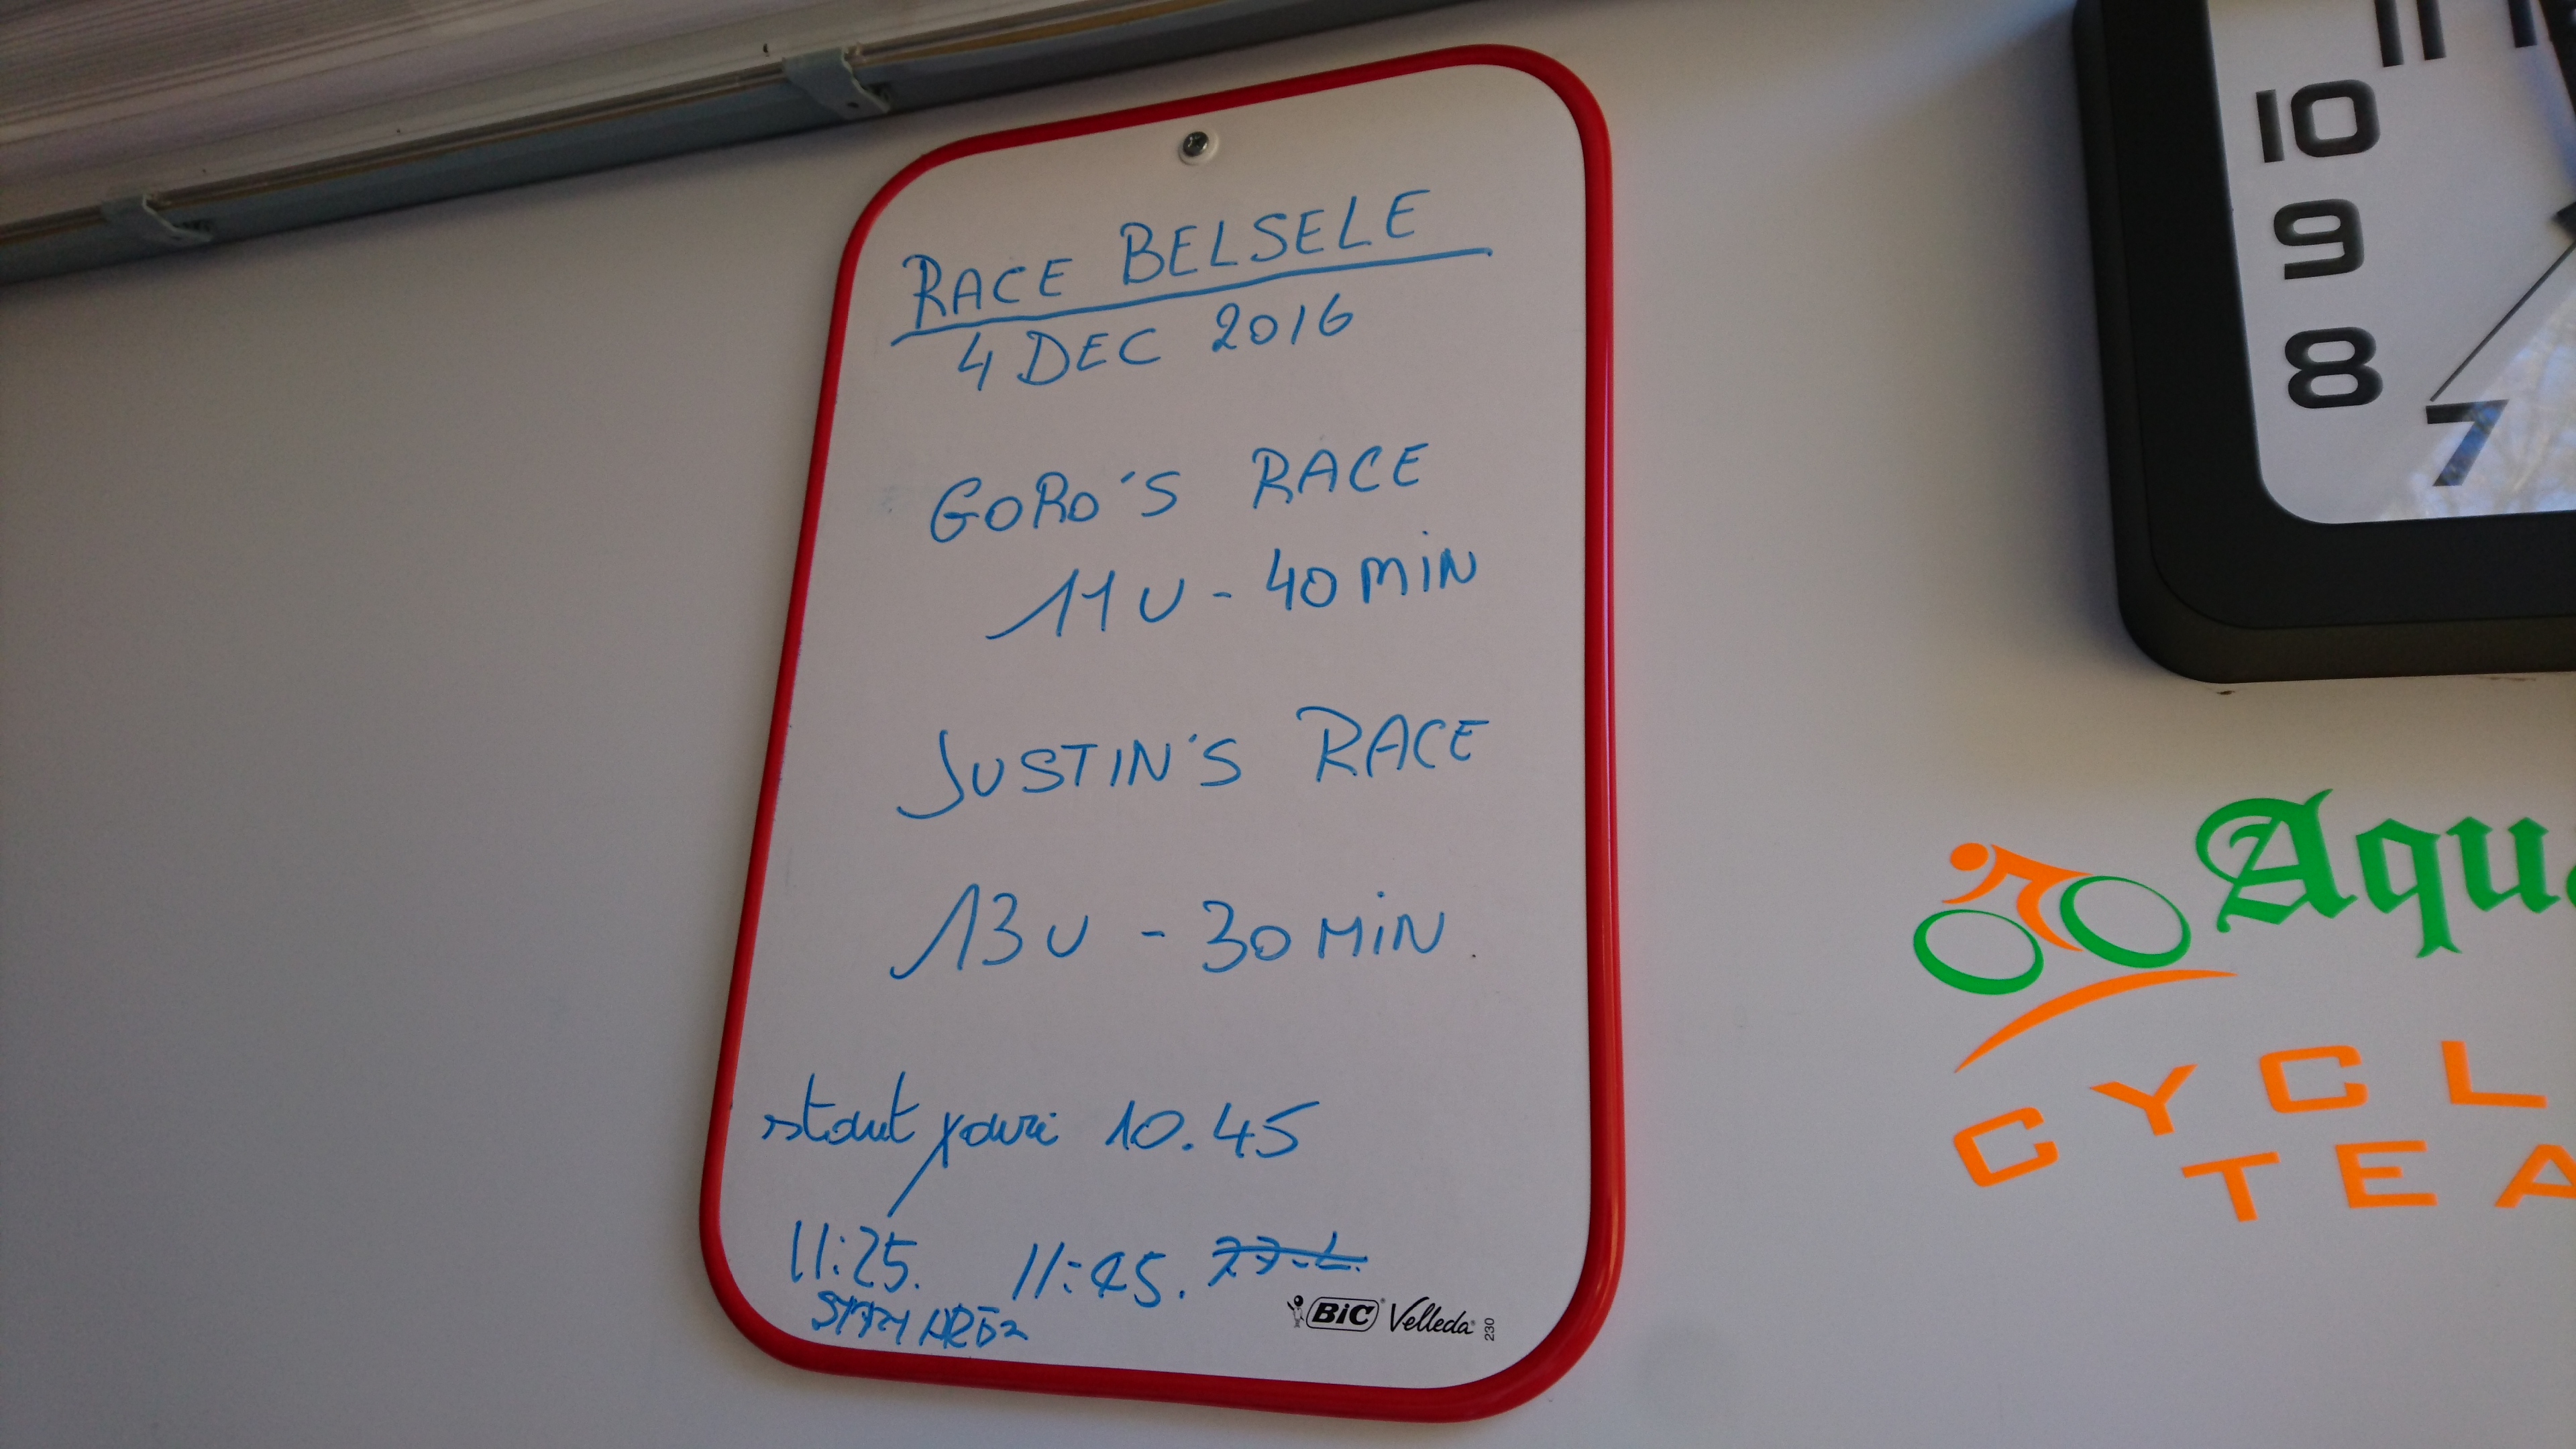 RACE BELSELE
4 DEC 2016
GORO'S RACE
11 U - 40 MIN
JUSTIN'S RACE
13 U - 30 MIN
10.45
11:25. 11:45.
BiC Velleda 230
11
10
9
8
7
Aqu
CYCL
TEA